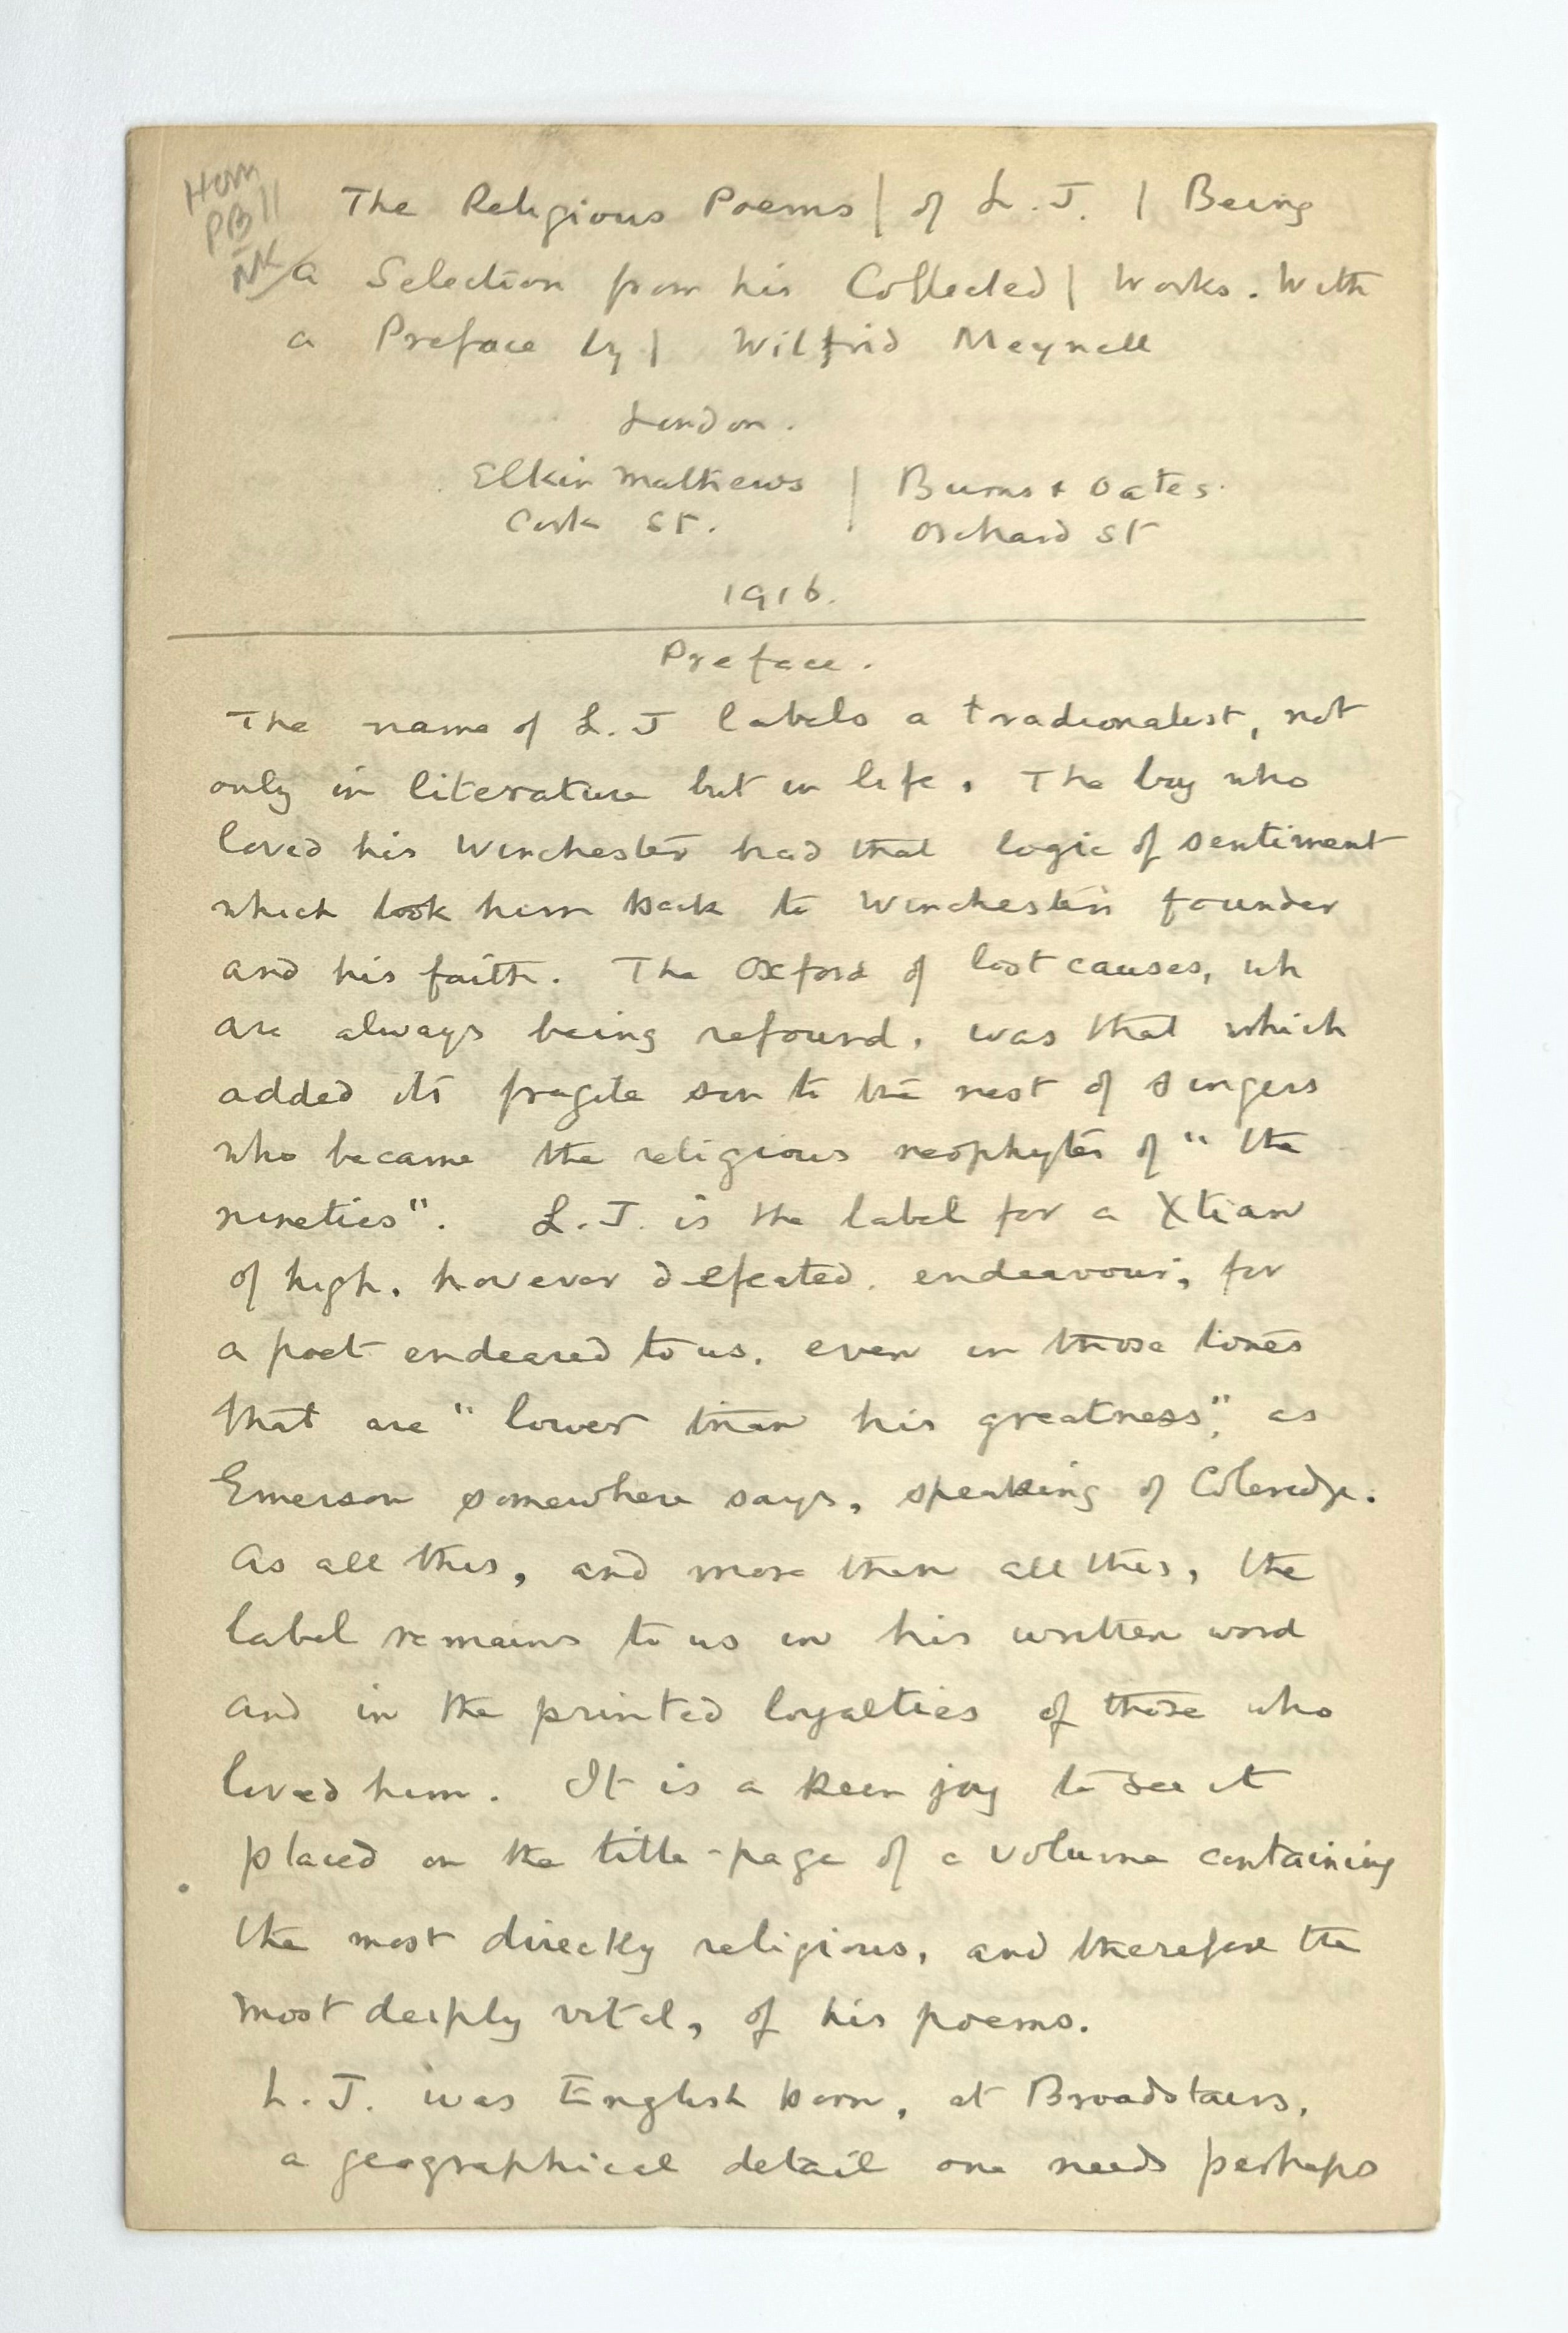 Horn
PB11
NK
The Religious Poems | of L. J. | Being
a Selection from his Collected | Works. With
a Preface by | Wilfrid Meynell
London.
Elkin Mathews | Burns & Oates.
Cork St. | Orchard St
1916.
Preface.
The name of L. J labels a tradionalist, not
only in literature but in life. The boy who
loved his Winchester had that logic of sentiment
which took him back to Winchester's founder
and his faith. The Oxford of lost causes, wh
are always being refound, was that which
added its fragile son to the nest of singers
who became the religious neophytes of "the
nineties". L. J. is the label for a Xtian
of high, however defeated, endeavour; for
a poet endeared to us, even in those tones
that are "lower than his greatness", as
Emerson somewhere says, speaking of Coleridge.
As all this, and more than all this, the
label remains to us in his written word
and in the printed loyalties of those who
loved him. It is a keen joy to see it
placed on the title-page of a volume containing
the most directly religious, and therefore the
most deeply vital, of his poems.
L. J. was English born, at Broadstairs,
a geographical detail one needs perhaps